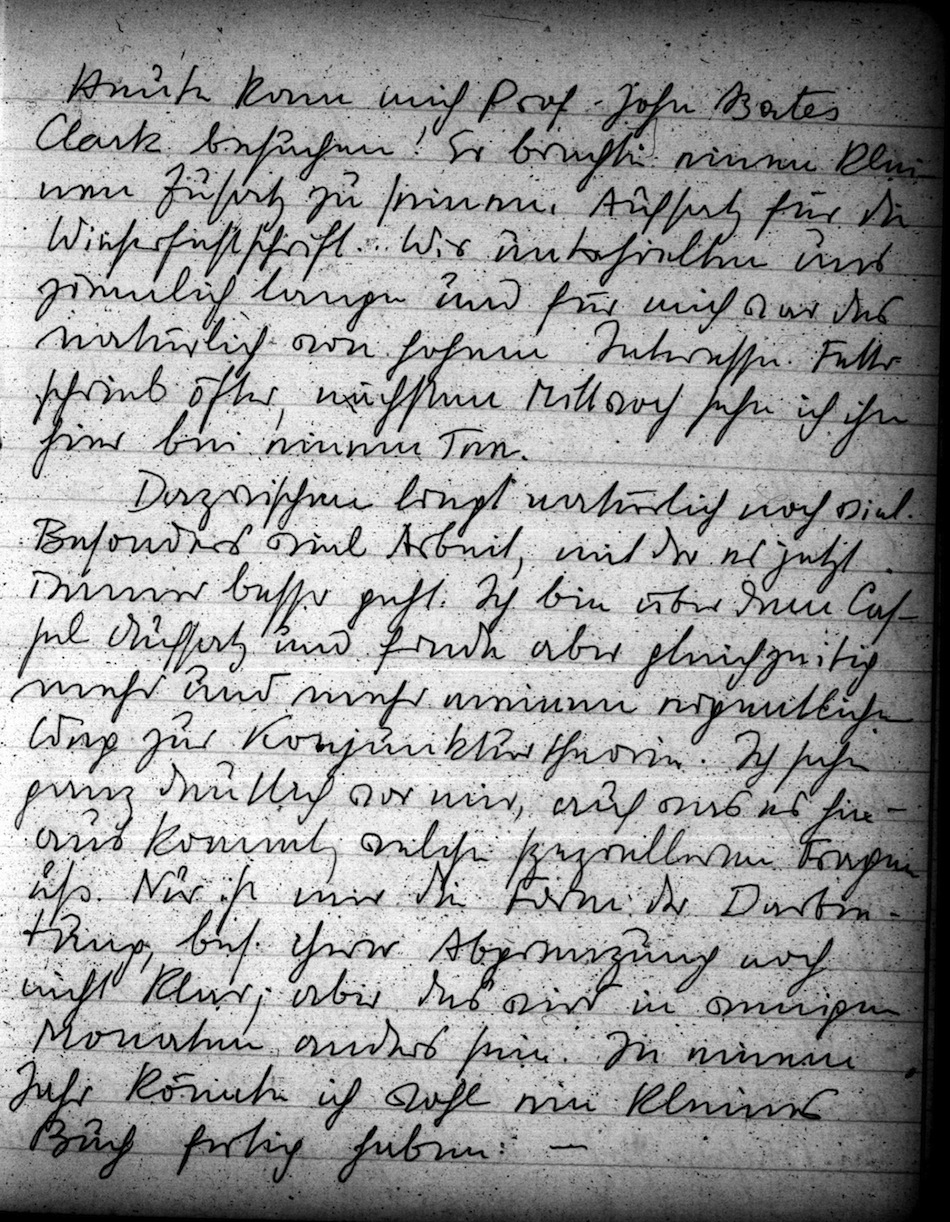 Heute kam mich Prof. John Bates
Clark besuchen! Er brachte einen klei-
nen Zusatz zu seinem Aufsatz für die
Wieserfestschrift. Wir unterhielten uns
ziemlich lange und für mich war das
natürlich von hohem Interesse. Fetter
schrieb öfter, nächsten Mittwoch sehe ich ihn
hier bei einem Tee.
Dazwischen liegt natürlich noch viel.
Besonders viel Arbeit, mit der es jetzt
immer besser geht. Ich bin über dem Cas-
sel Aufsatz und finde aber gleichzeitig
mehr und mehr meinen eigentlichen
Weg zur Konjunkturtheorie. Ich sehe
ganz deutlich vor mir, auch was es hin-
aus kommt, welche spezielleren Fragen
usf. Nur ist mir die Form der Darbie-
tung, bes. ihrer Abgrenzung noch
nicht klar; aber das wird in wenigen
Monaten anders sein. In einem
Jahr könnte ich wohl ein kleines
Buch fertig haben. —